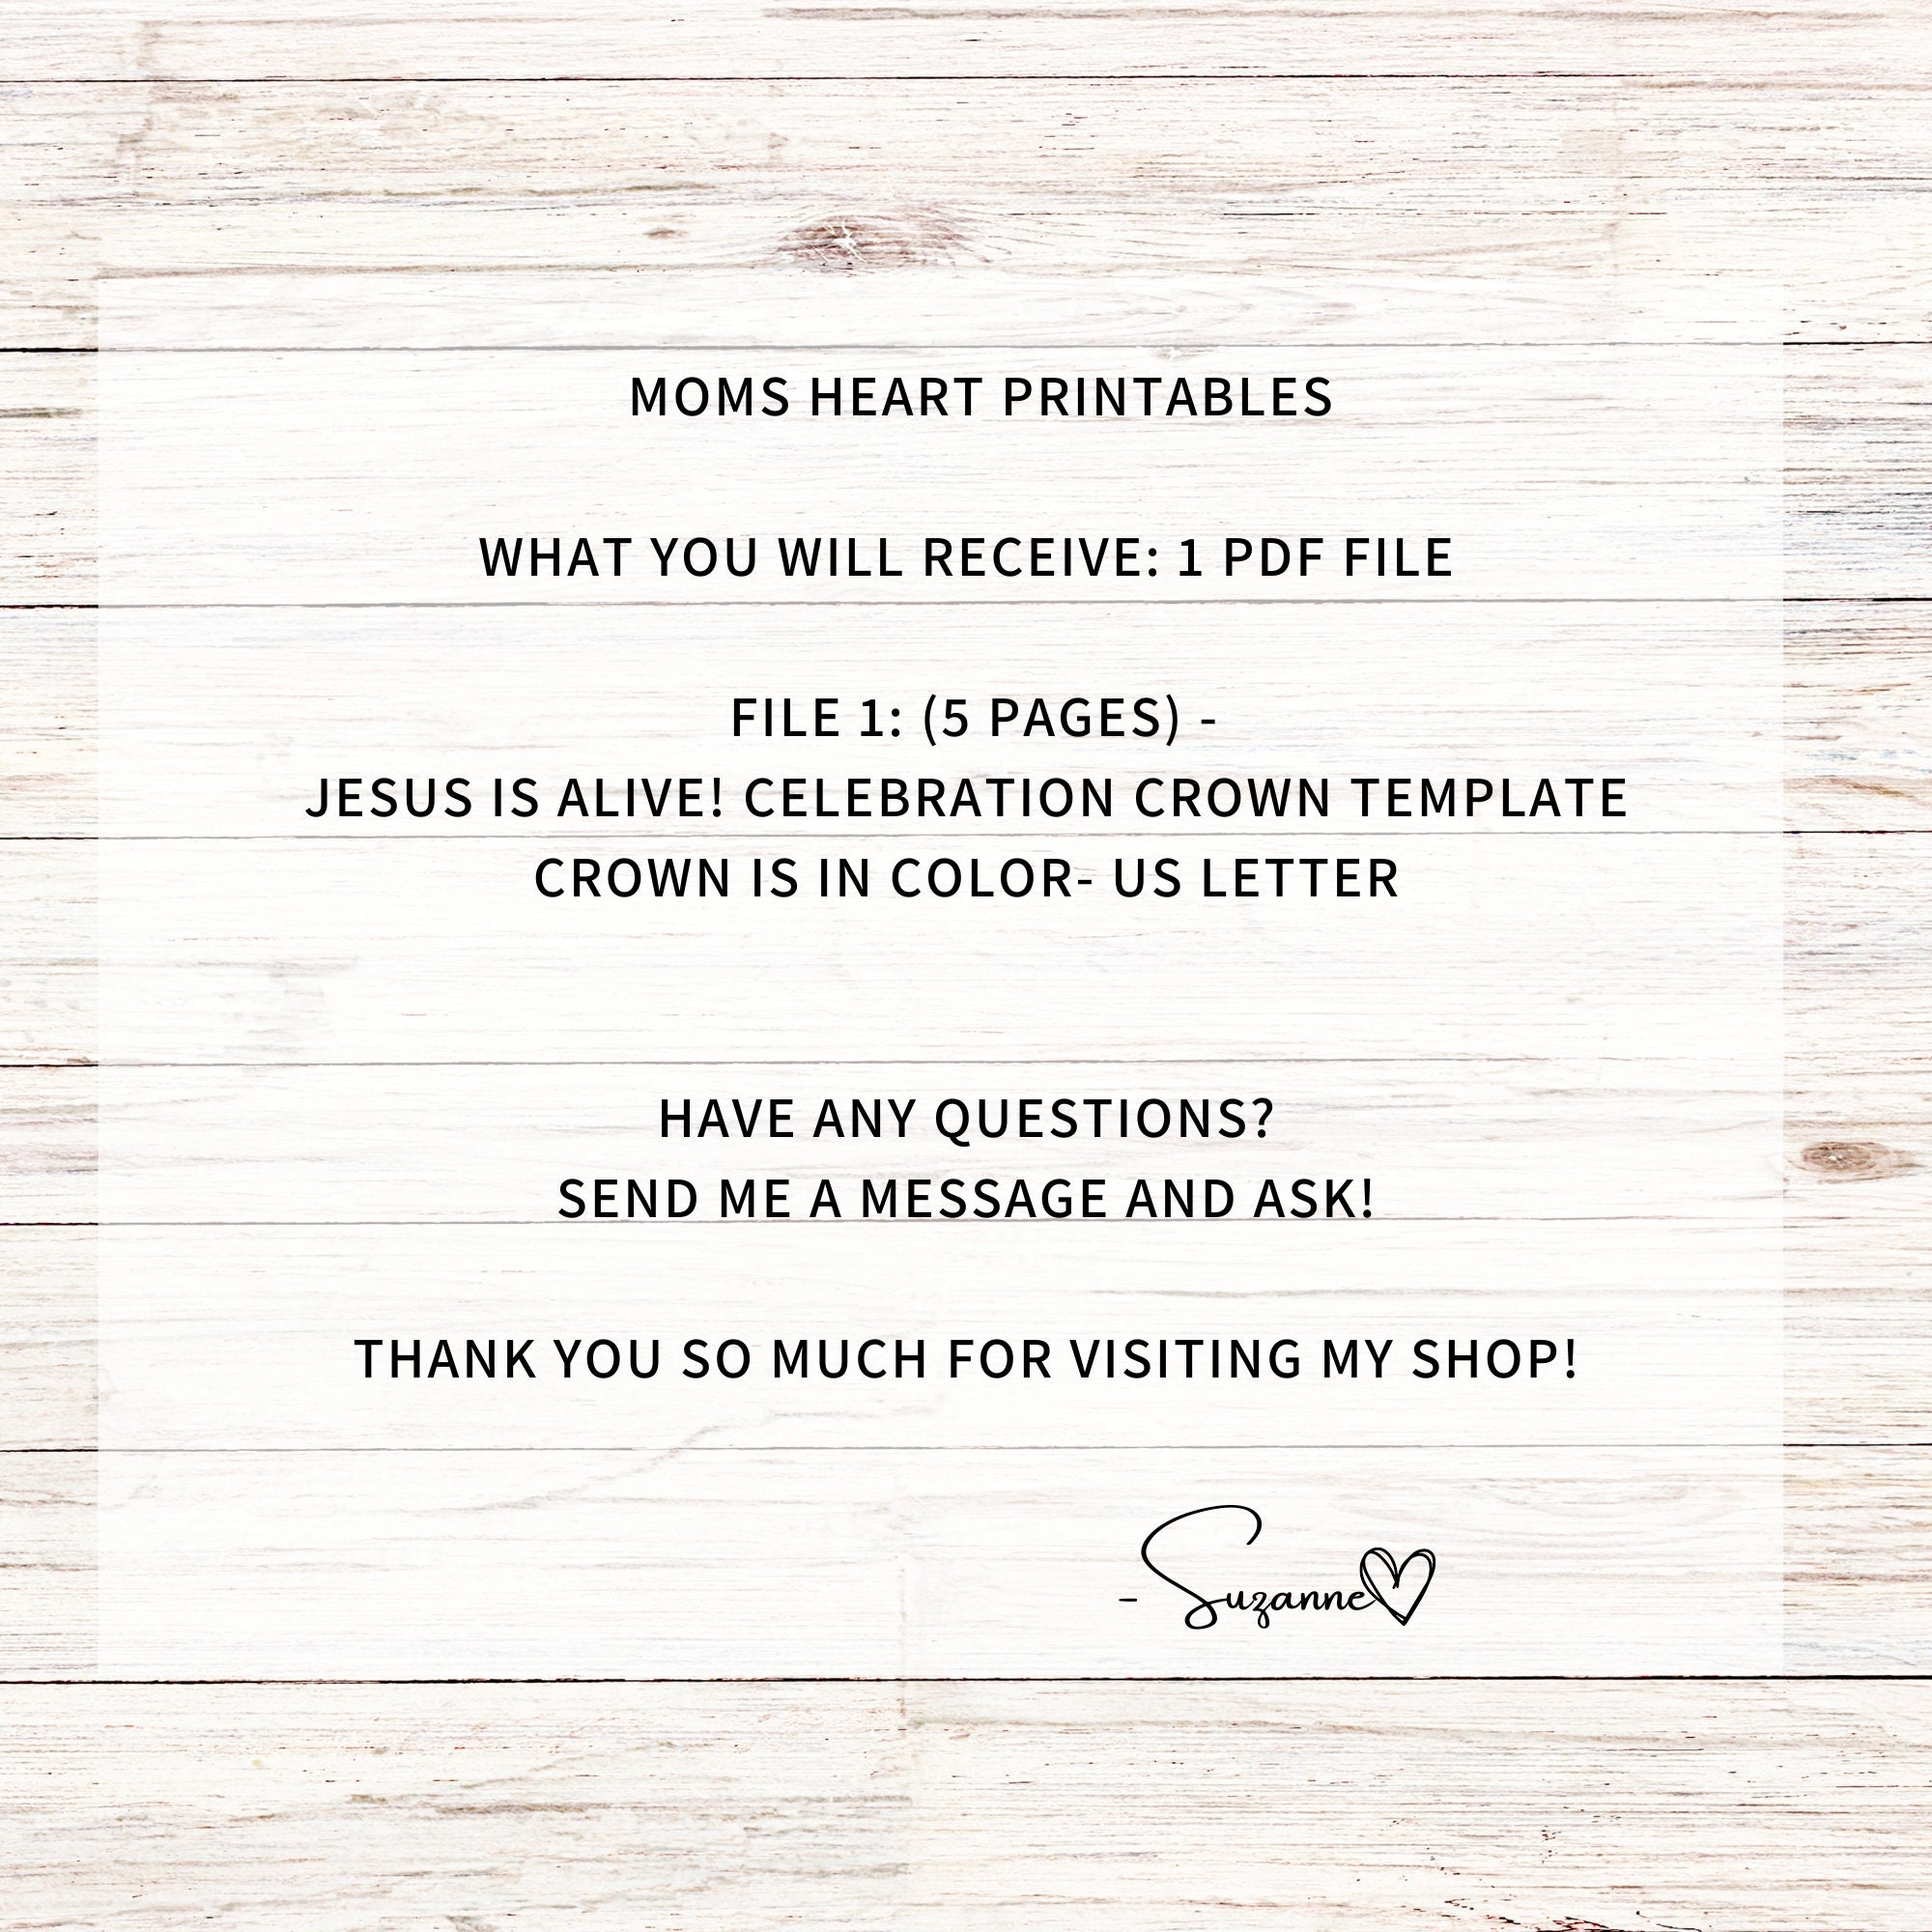 MOMS HEART PRINTABLES
WHAT YOU WILL RECEIVE: 1 PDF FILE
FILE 1: (5 PAGES) -
JESUS IS ALIVE! CELEBRATION CROWN TEMPLATE
CROWN IS IN COLOR- US LETTER
HAVE ANY QUESTIONS?
SEND ME A MESSAGE AND ASK!
THANK YOU SO MUCH FOR VISITING MY SHOP!
- Suzanne